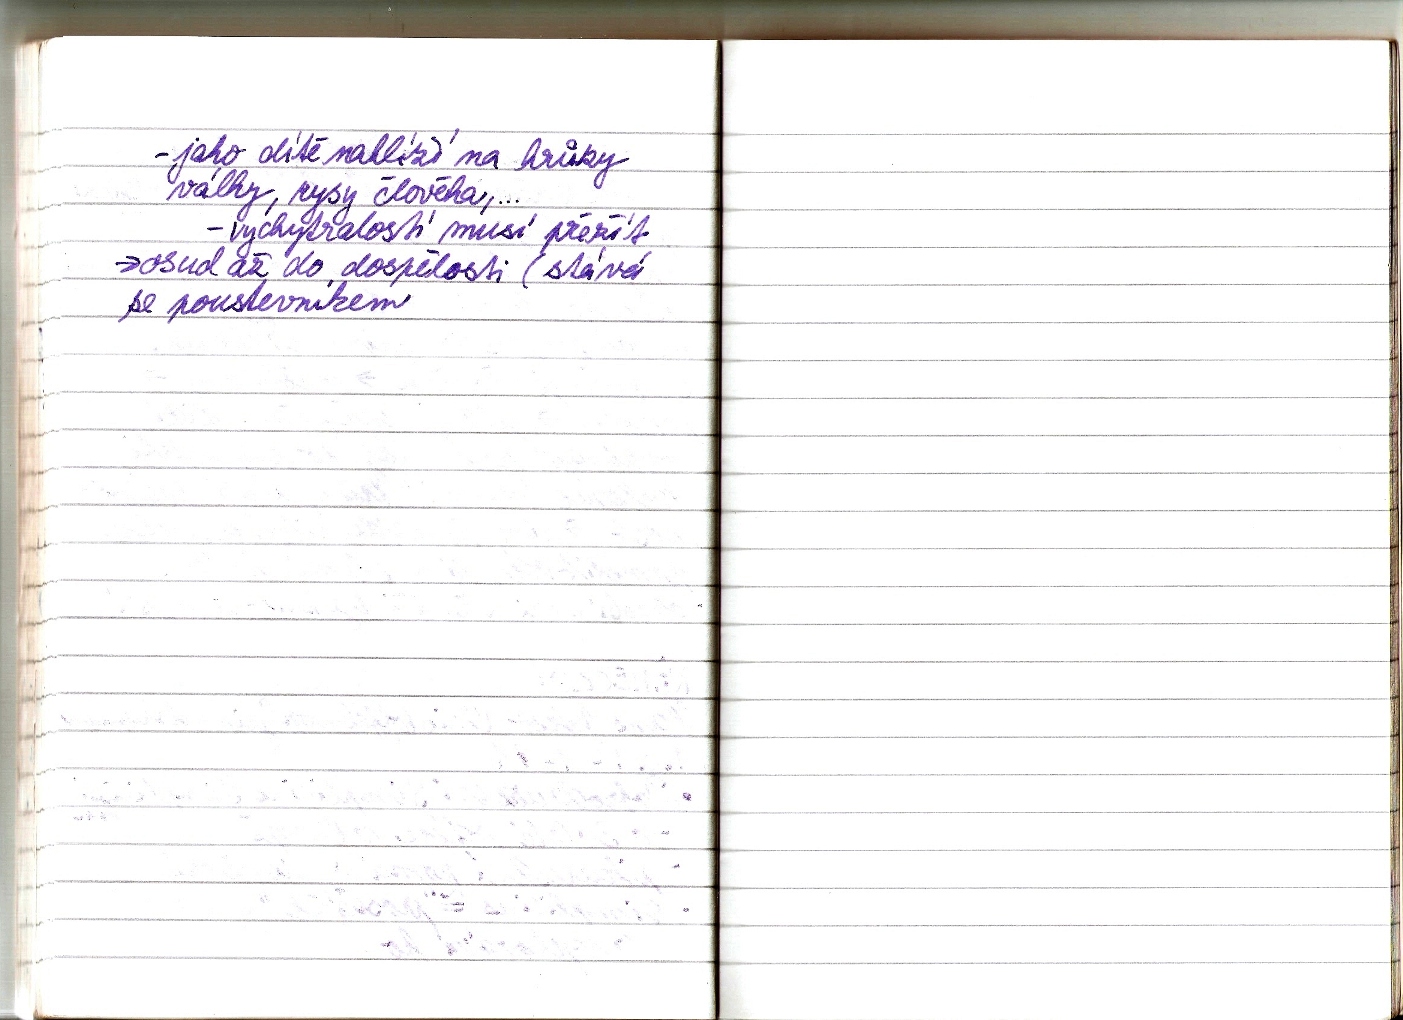 - jako dítě nahlíží na hrůzy
války, rysy člověka,...
- vychytralostí musí přežít
→ osud až do dospělosti (stává
se poustevníkem